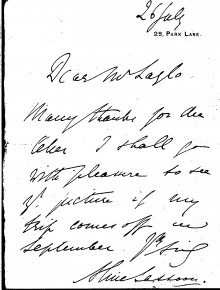 26 July
25, PARK LANE.
Dear Mr Laszlo.
Many thanks for the
letter I shall go
with pleasure to see
yr. picture if my
trip comes off in
September. Yrs
Aline Sassoon.